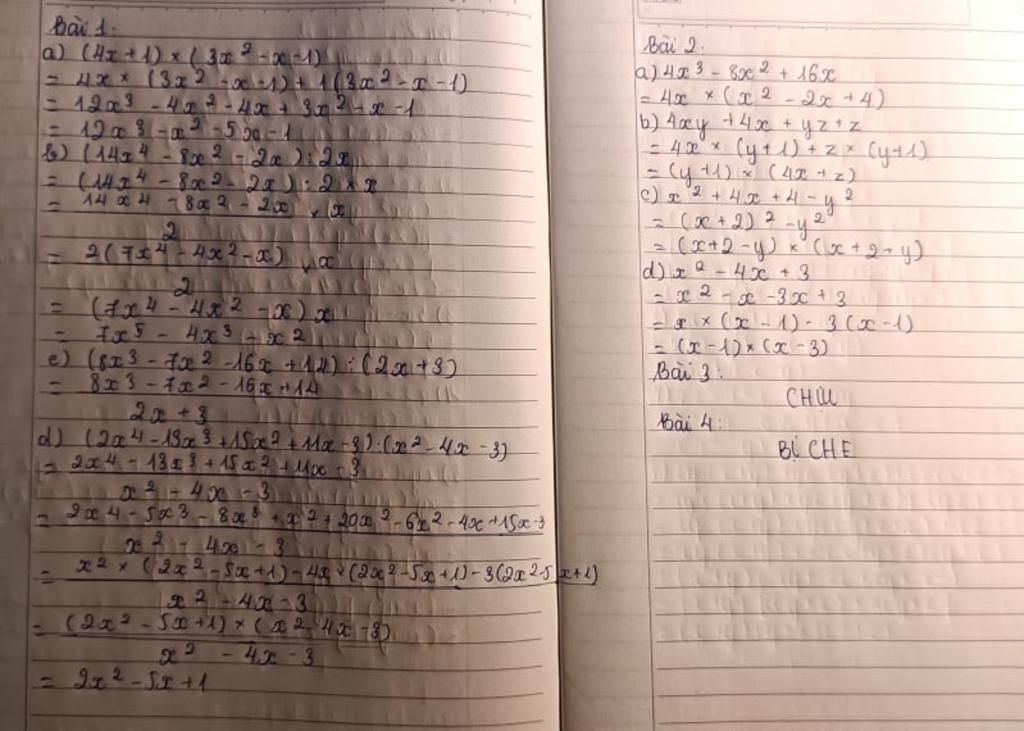 Bài 1:
a) (4x+1) × (3x² - x - 1)
= 4x × (3x² - x - 1) + 1(3x² - x - 1)
= 12x³ - 4x² - 4x + 3x² - x - 1
= 12x³ - x² - 5x - 1
b) (14x⁴ - 8x² - 2x) : 2x
= (14x⁴ - 8x² - 2x) : 2 × x
= 14x⁴ - 8x² - 2x × x
2
= 2(7x⁴ - 4x² - x) × x
2
= (7x⁴ - 4x² - x) x
= 7x⁵ - 4x³ - x²
c) (8x³ - 7x² - 16x + 14) : (2x+3)
= 8x³ - 7x² - 16x + 14
2x + 3
d) (2x⁴ - 13x³ + 15x² + 11x - 3) : (x² - 4x - 3)
= 2x⁴ - 13x³ + 15x² + 11x - 3
x² - 4x - 3
= 2x⁴ - 5x³ - 8x³ + x² + 20x² - 6x² - 4x + 15x - 3
x² - 4x - 3
= x² × (2x² - 5x + 1) - 4x × (2x² - 5x + 1) - 3(2x² - 5x + 1)
x² - 4x - 3
= (2x² - 5x + 1) × (x² - 4x - 3)
x² - 4x - 3
= 2x² - 5x + 1
Bài 2:
a) 4x³ - 8x² + 16x
= 4x × (x² - 2x + 4)
b) 4xy + 4x + yz + z
= 4x × (y+1) + z × (y+1)
= (y+1) × (4x + z)
c) x² + 4x + 4 - y²
= (x+2)² - y²
= (x+2-y) × (x+2+y)
d) x² - 4x + 3
= x² - x - 3x + 3
= x × (x-1) - 3(x-1)
= (x-1) × (x-3)
Bài 3:
Bài 4:
BỊ CHE